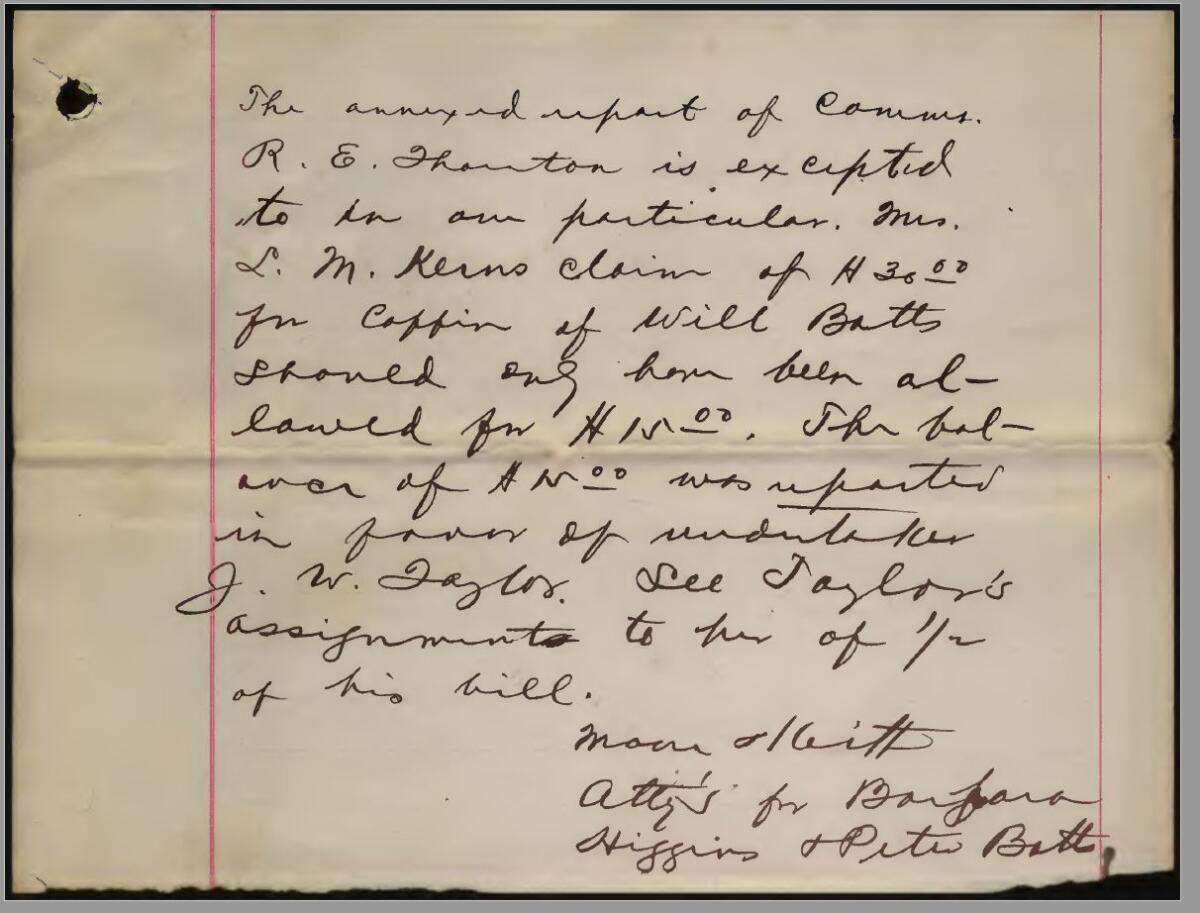 The annexed report of Comms.
R. E. Thornton is excepted
to in one particular. Mrs.
L. M. Kerns claim of $30.00
for Coffin of Will Batts
should only have been al-
lowed for $15.00. The bal-
ance of $15.00 was reported
in favor of undertaker
J. W. Taylor. See Taylor's
assignment to her of 1/2
of his bill.
Moore & Keith
Atty's for Barbara
Higgins & Peter Batts